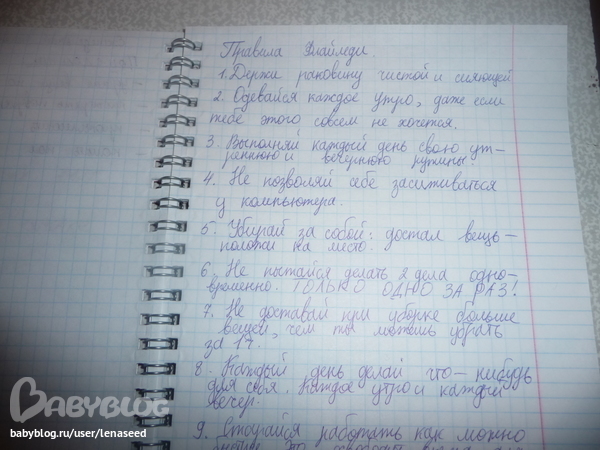 Правила Флайледи.
1. Держи раковину чистой и сияющей
2. Одевайся каждое утро, даже если
тебе этого совсем не хочется.
3. Выполняй каждый день свою ут-
реннюю и вечернюю рутины
4. Не позволяй себе засиживаться
у компьютера.
5. Убирай за собой: достал вещь –
положи на место.
6. Не пытайся делать 2 дела одно-
временно. ТОЛЬКО ОДНО ЗА РАЗ!
7. Не доставай при уборке больше
вещей, чем ты можешь убрать
за 1
8. Каждый день делай что-нибудь
для себя. Каждое утро и каждый
вечер.
9. Старайся работать как можно
BABYBLOG
babyblog.ru/user/lenaseed